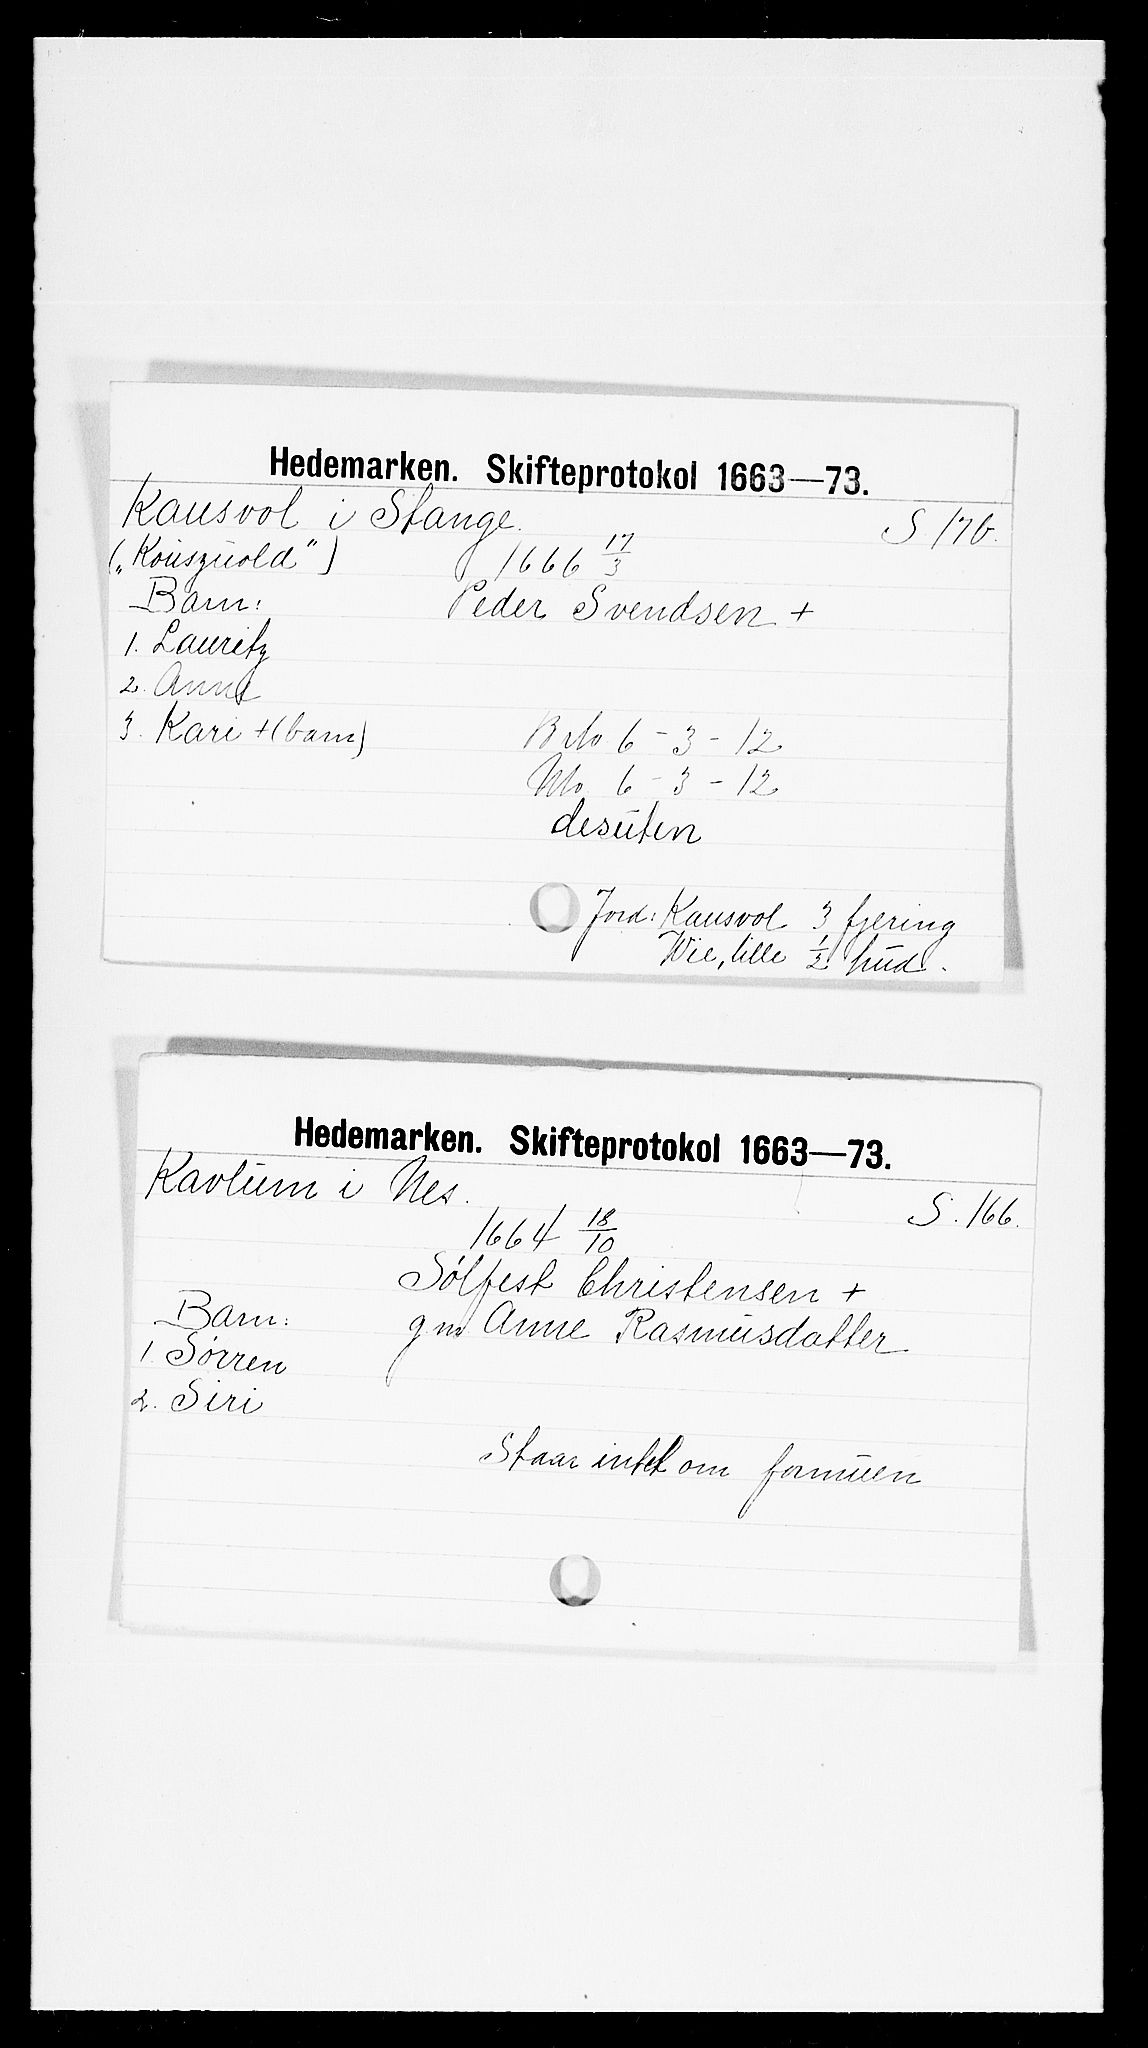 Hedemarken. Skifteprotokol 1663—73.
Kausvol i Stange.
S 17b.
(„Kouszuold")
1666 17/3
Barn:
Peder Svendsen +
1. Lauritz
2. Anne
3. Kari + (barn)
Brto 6 - 3 - 12
Nto 6 - 3 - 12
desuten
Jord: Kausvol 3 fjering
Wie, lille 1/2 hud.
Hedemarken. Skifteprotokol 1663—73.
Kavlum i Nes.
S. 166.
1664 18/10
Sølfest Christensen +
Barn:
gm Anne Rasmusdatter
1. Sørren
2. Siri
Staar intet om formuen